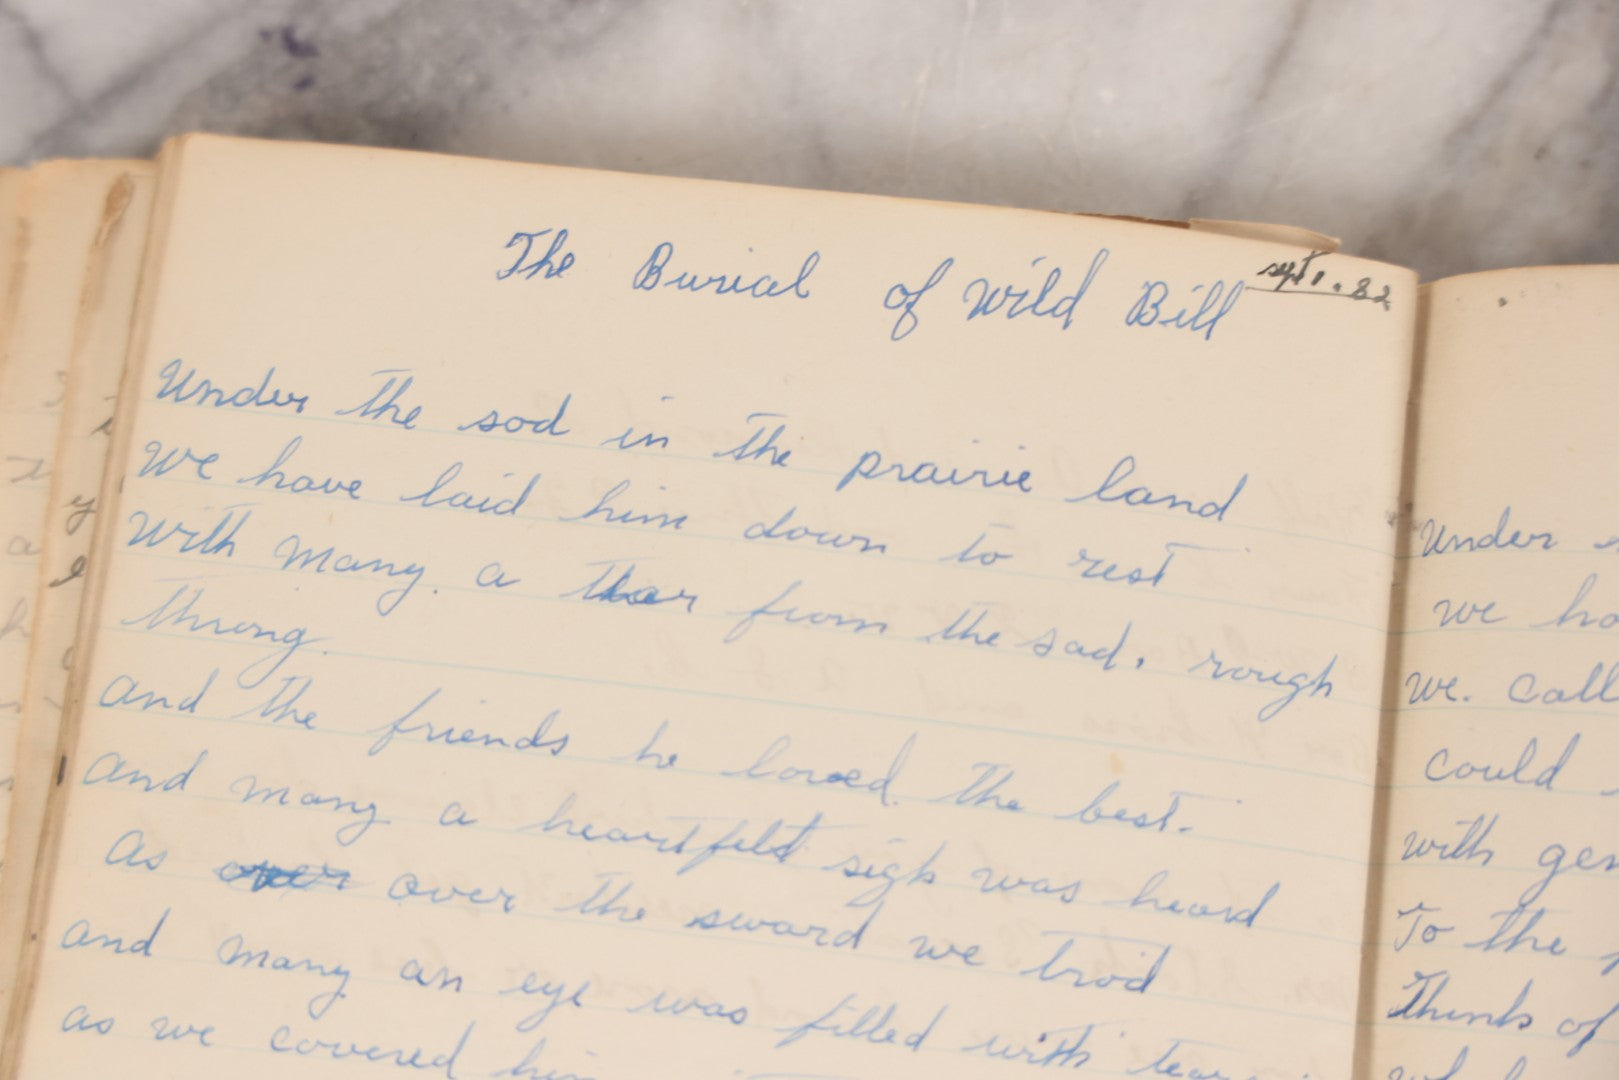 The Burial of Wild Bill
sept 1. 82
Under the sod in the prairie land
we have laid him down to rest
with many a tear from the sad, rough
throng.
and the friends he loved the best.
and many a heartfelt sigh was heard
as over over the sward we trod
and many an eye was filled with tears
as we covered him
Under
we
we. call
could
with
To the
Thinks of